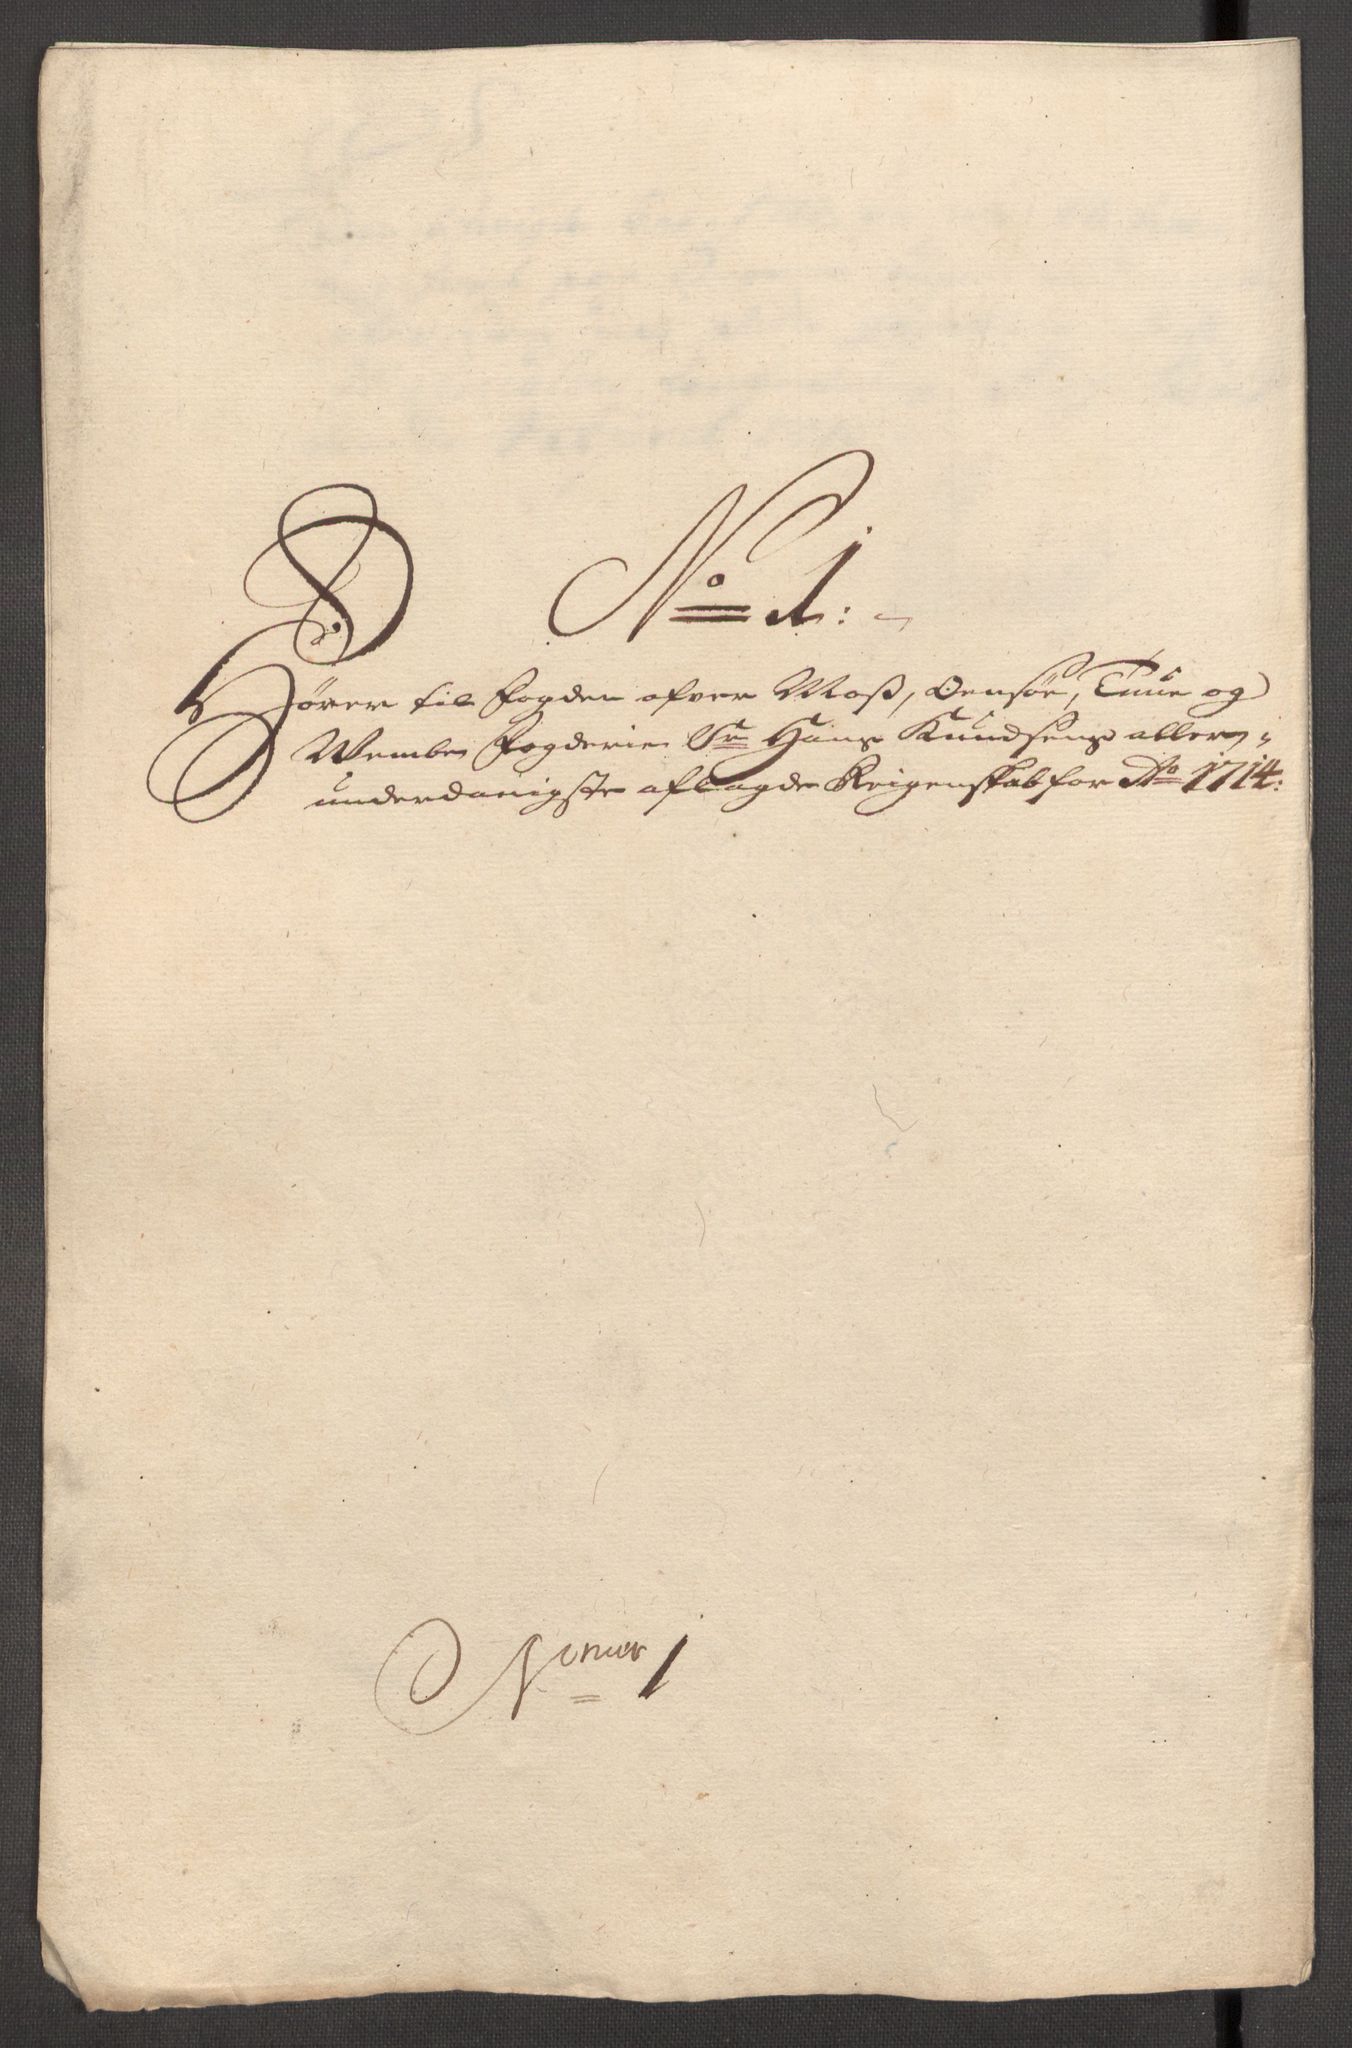 No 1:
Hörer til Fogden ofver Moss, Oensöe, Tuue og
Wemben Fogderie Sr Hans Knudsens allern-
underdanigste aflagde Reigenskab for Ao 1714:
Numer 1